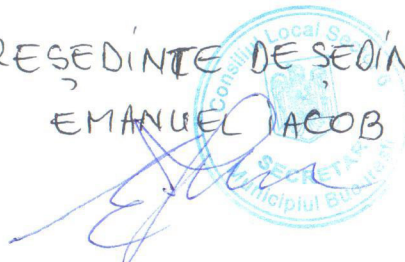 REȘEDINTE DE SEDIN
EMANUEL IACOB
Consiliul Local Se
6
SECRETAR
Municipiul Bucureşti